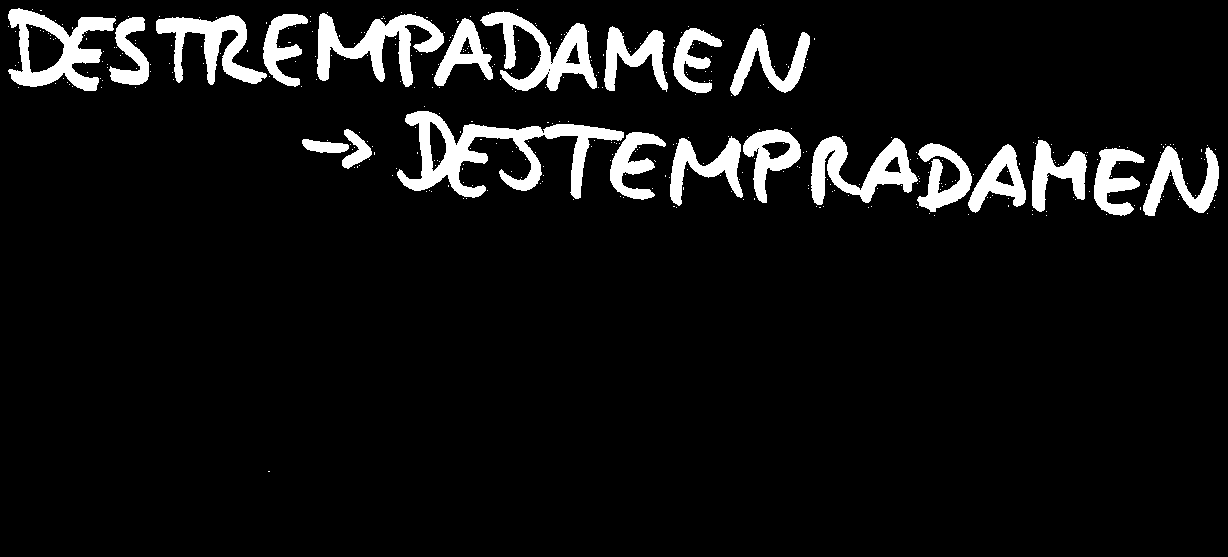 DESTREMPADAMEN
→ DESTEMPRADAMEN